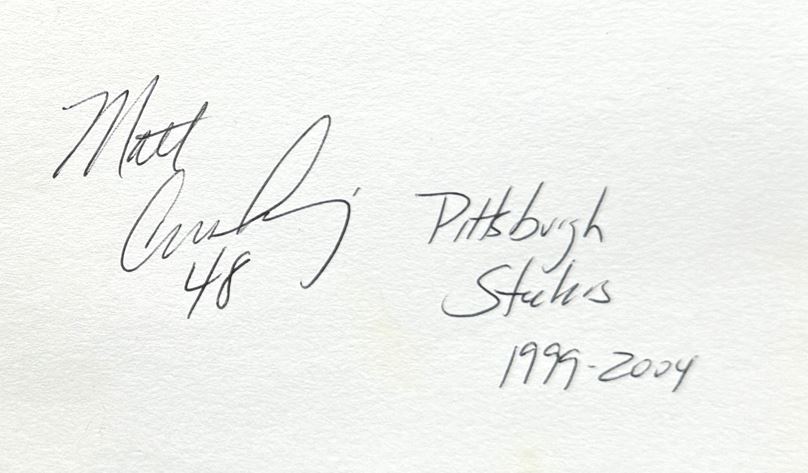 Matt
Cushing
48
Pittsburgh
Steelers
1999-2004